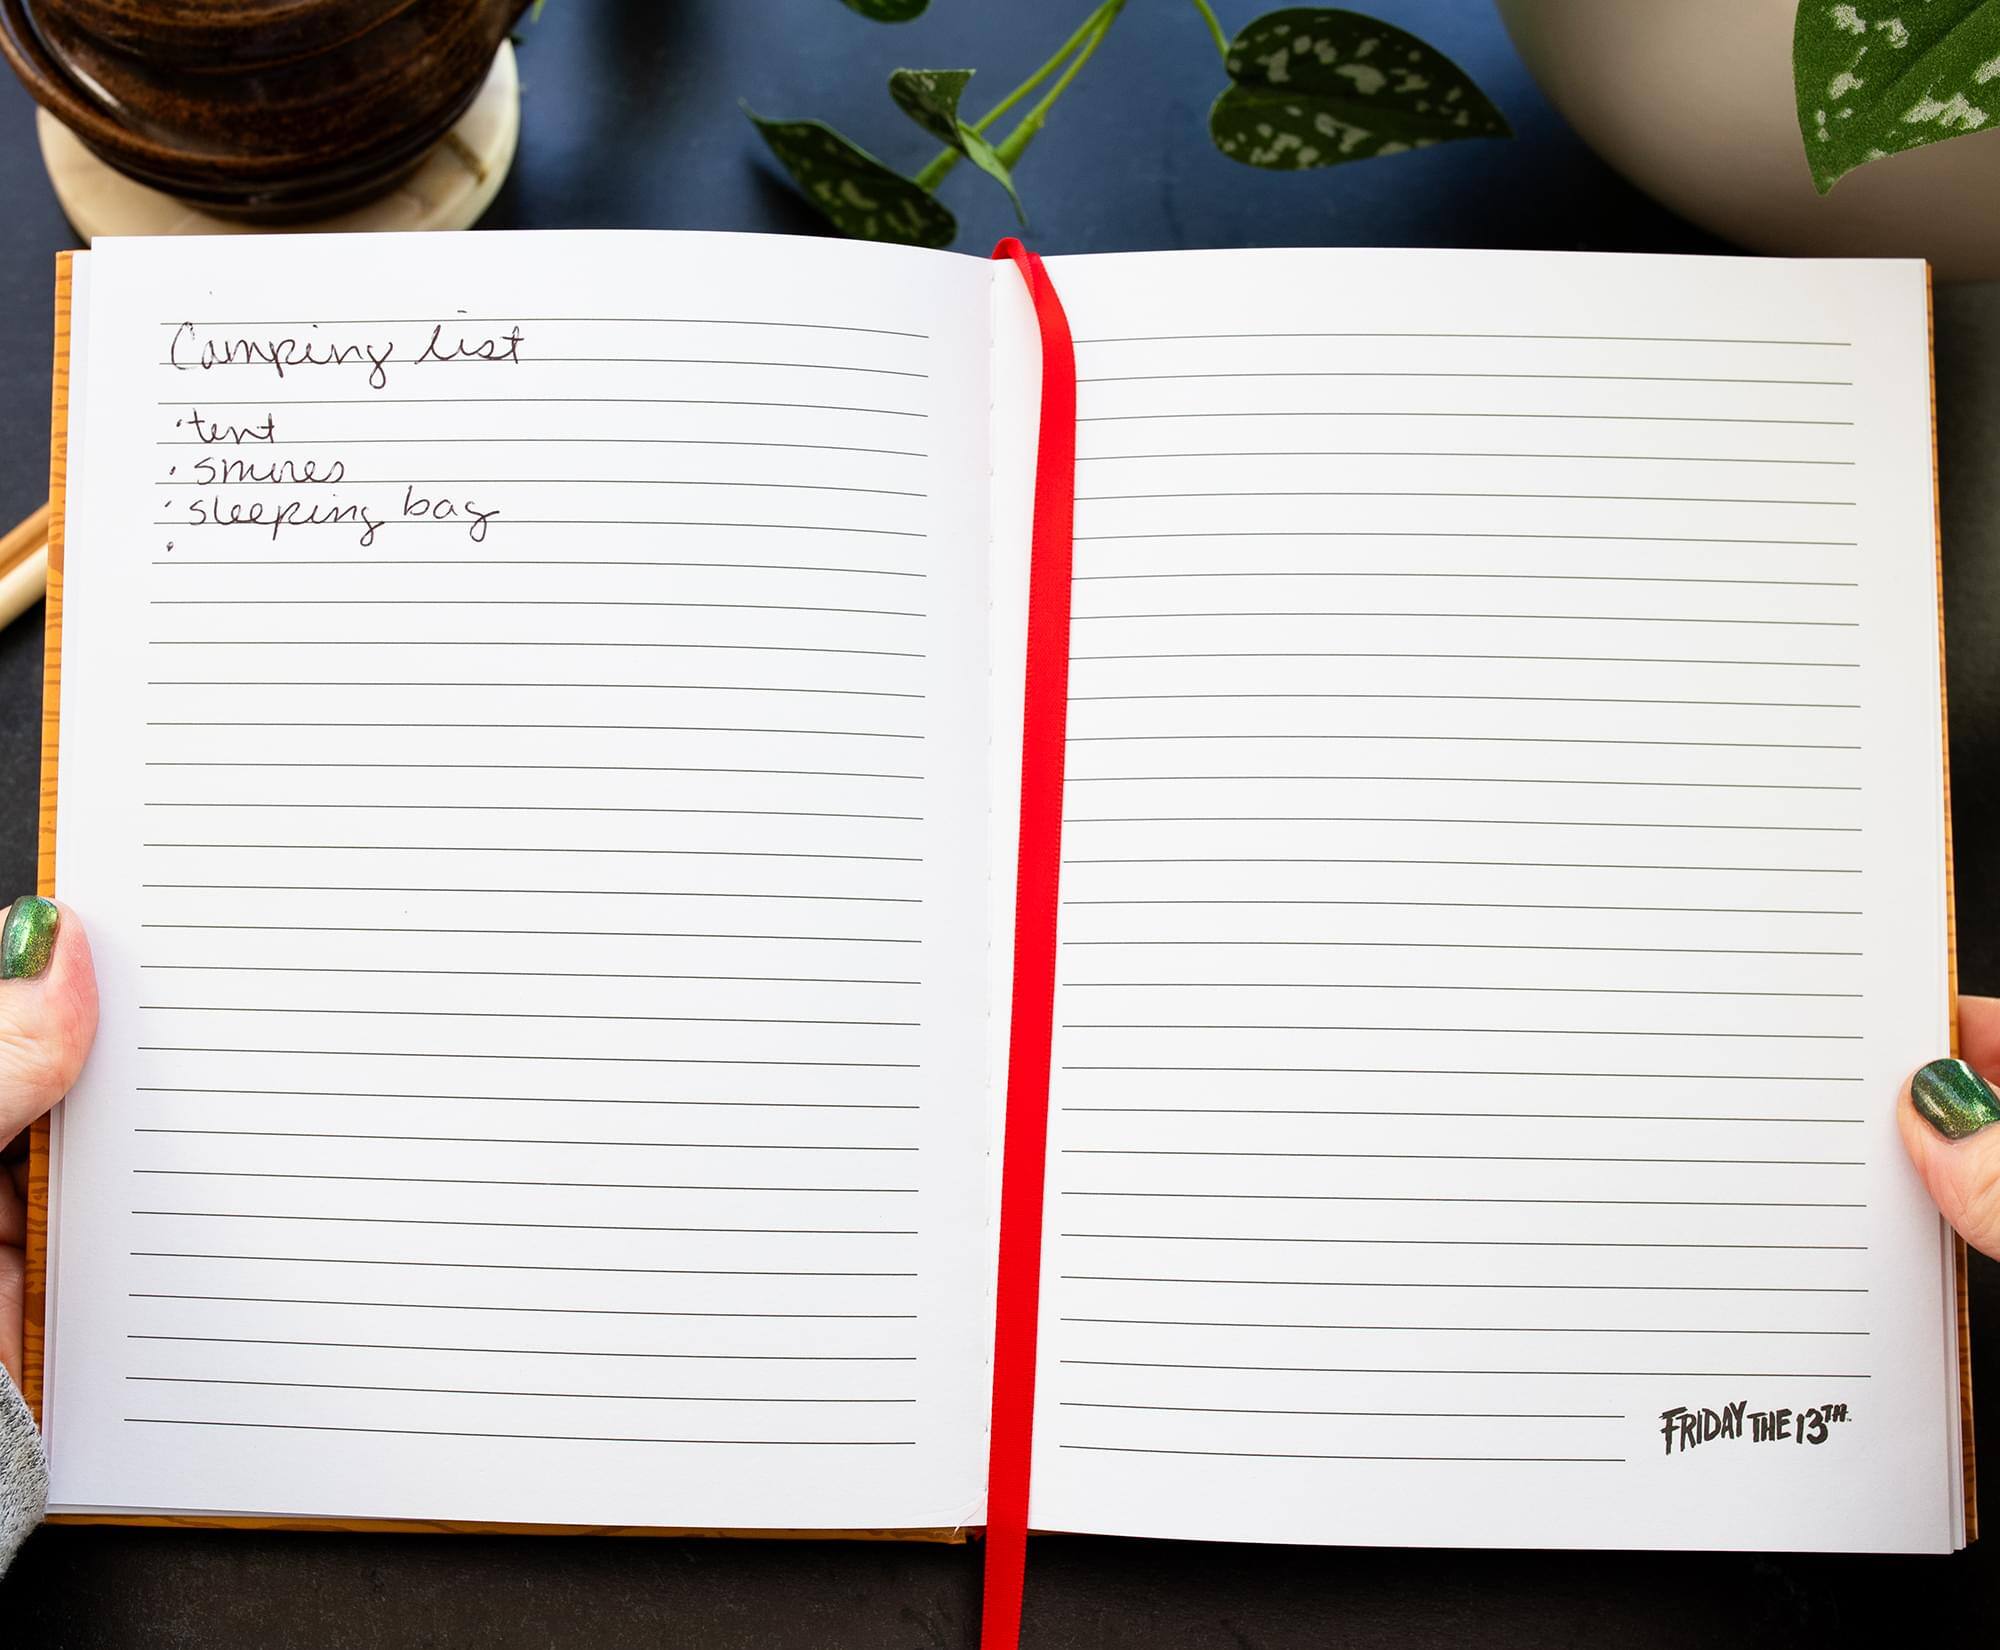 Camping list
· tent
· smores
· sleeping bag
·
FRIDAY THE 13TH